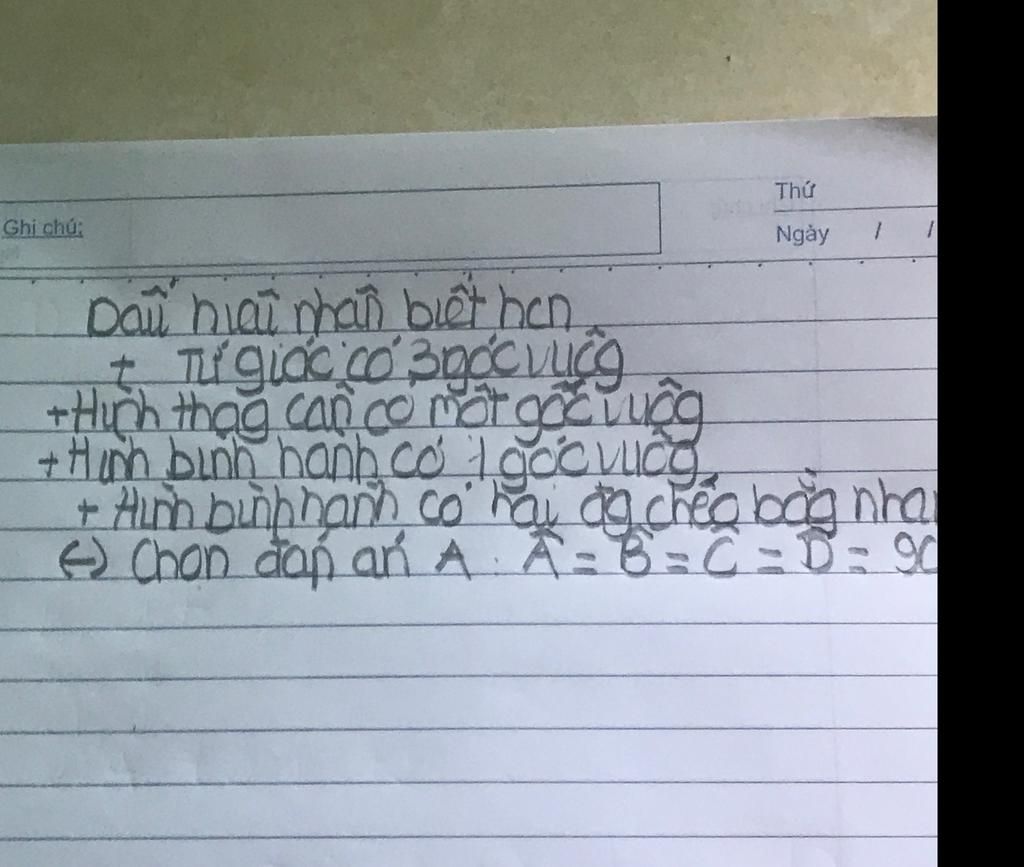 Thứ
Ghi chú:
Ngày / /
Dấu hiệu nhận biết hcn
+ Tứ giác có 3 góc vuôg
+ Hình thag cân có một góc vuôg
+ Hình bình hành có 1 góc vuôg
+ Hình bình hành có hai đg chéo bằg nha
(-) Chọn đáp án A. Â = B̂ = Ĉ = D̂ = 90